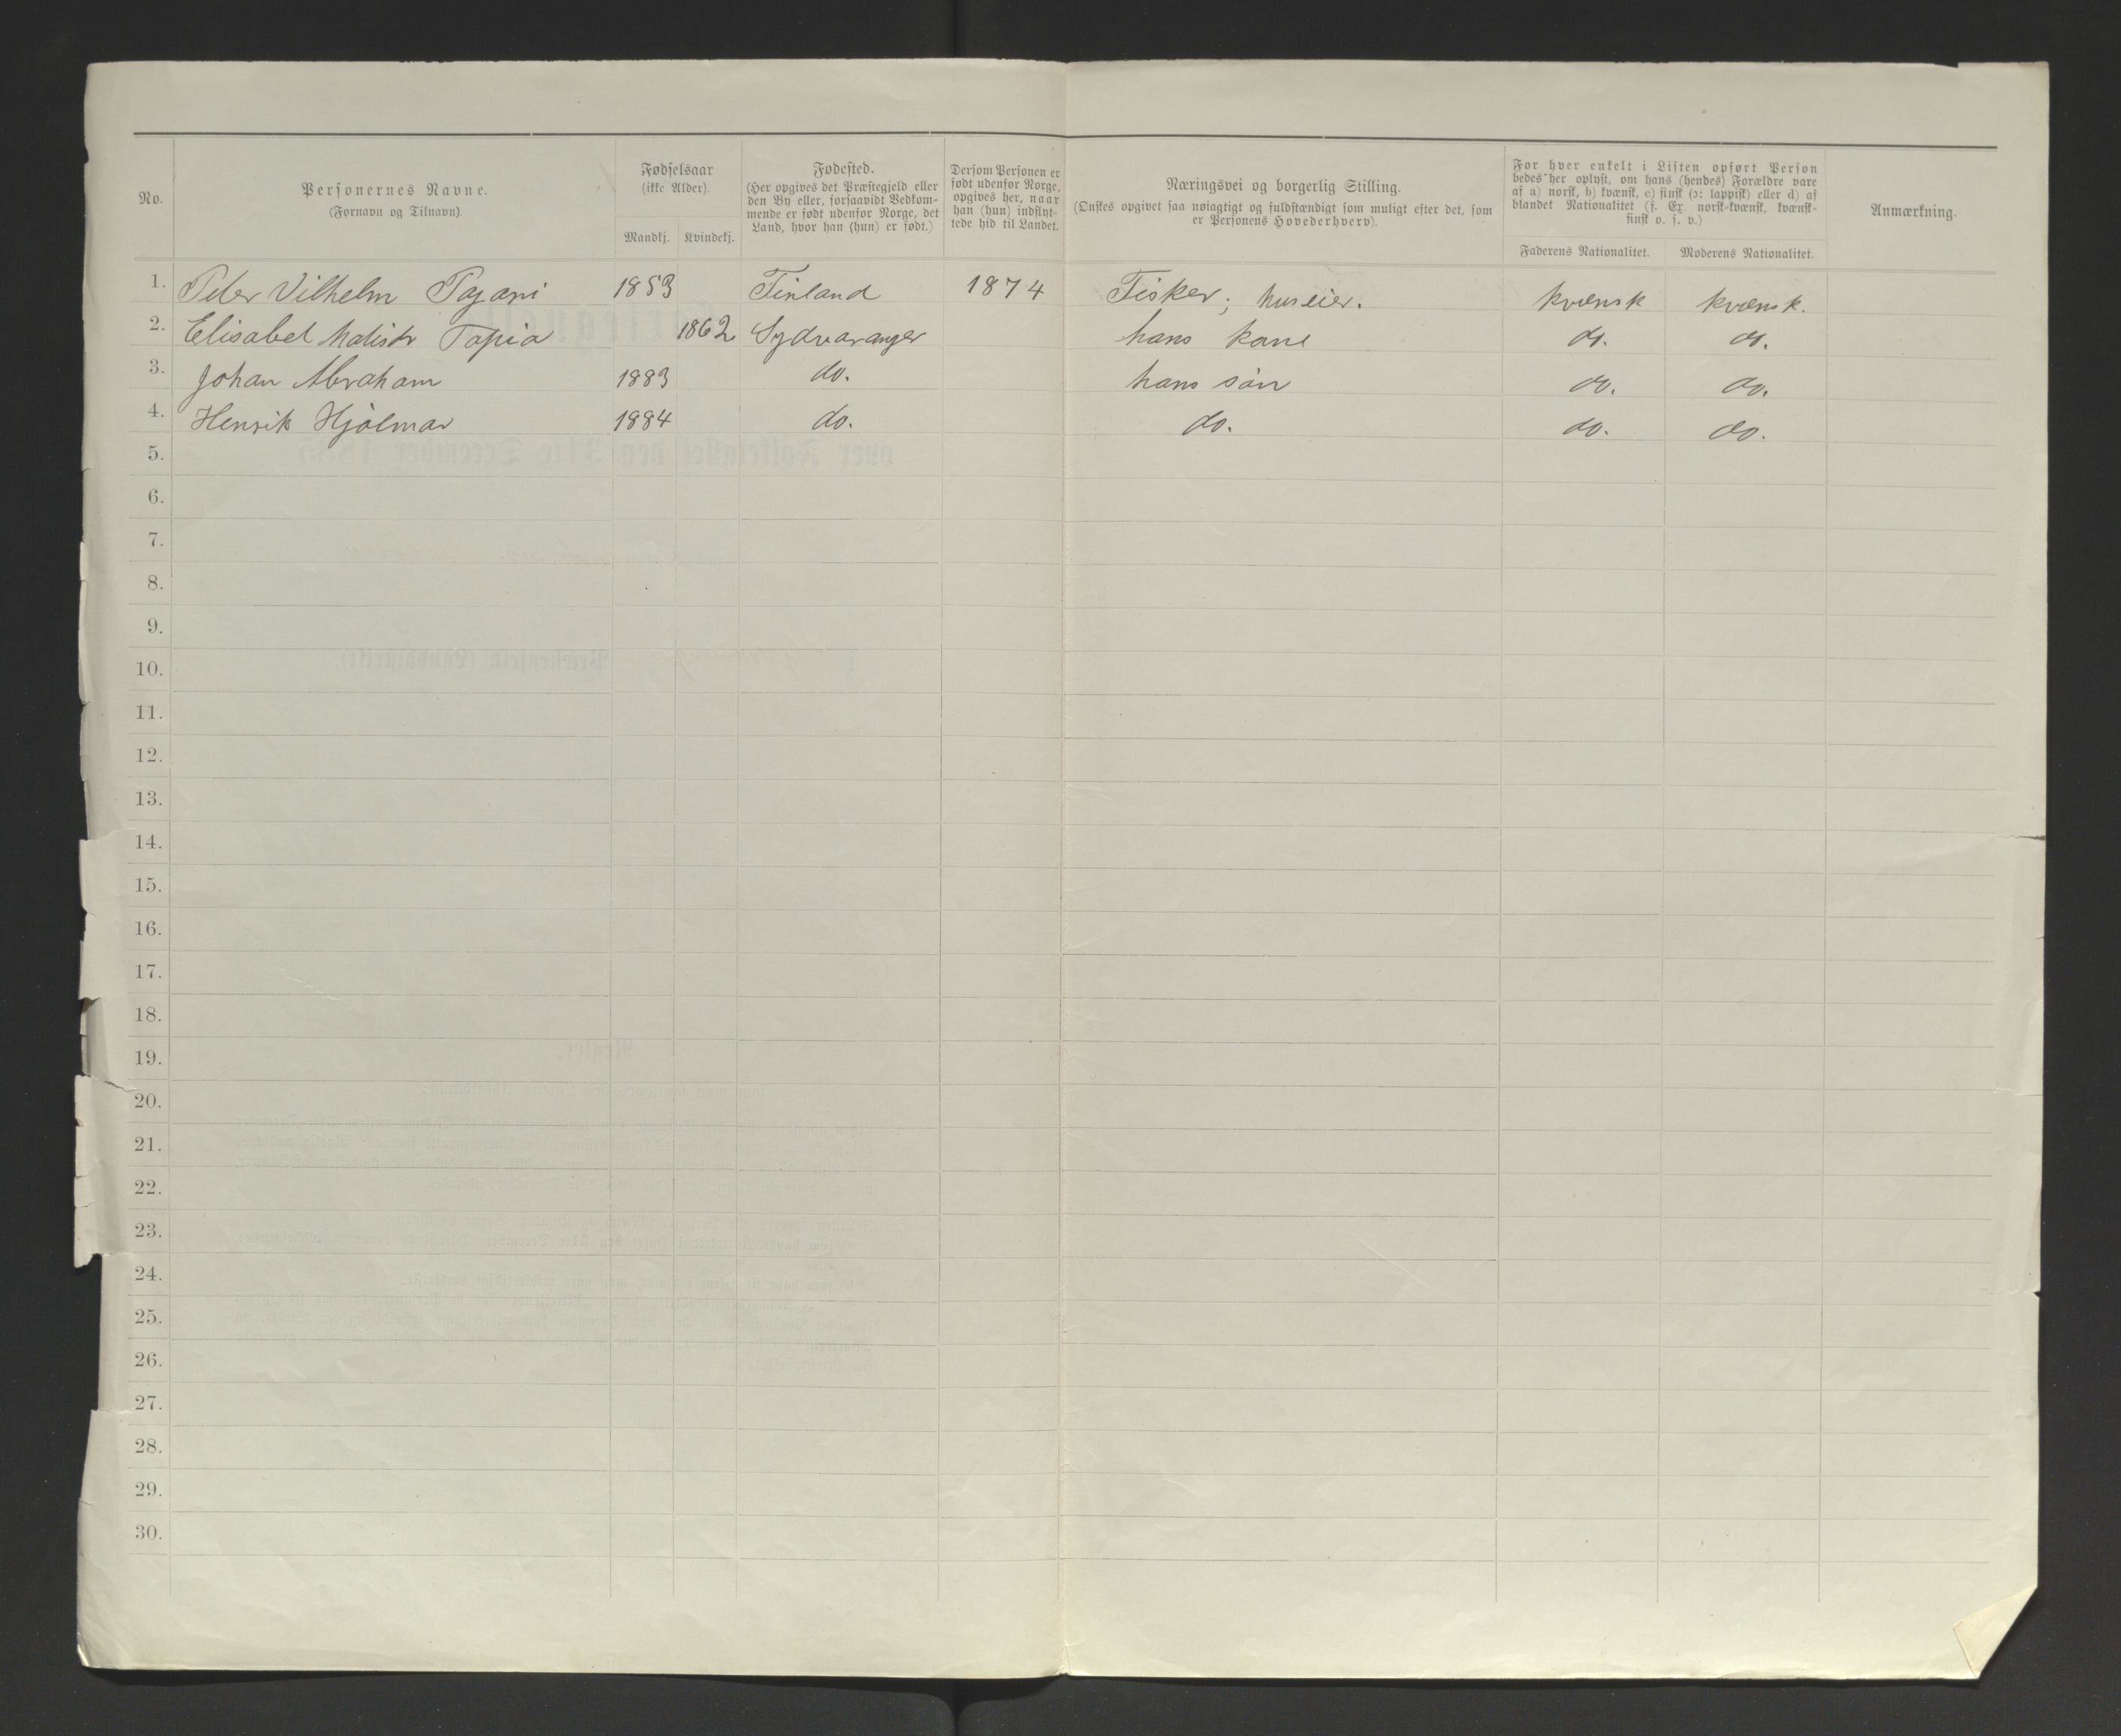 No.
Personernes Navne.
(Fornavn og Tilnavn)
Fødselsaar
(ikke Alder).
Mandkj. Kvindekj.
Fødested.
(Her opgives det Præstegjeld eller
den By eller, forsaavidt Vedkom-
mende er født udenfor Norge, det
Land, hvor han (hun) er født.)
Dersom Personen er
født udenfor Norge,
opgives her, naar
han (hun) indflyt-
tede hid til Landet.
Næringsvei og borgerlig Stilling.
(Ønskes opgivet saa nøiagtigt og fuldstændigt som muligt efter det, som
er Personens Hovederhverv).
For hver enkelt i Listen opført Person
bedes her oplyst, om hans (hendes) Forældre vare
af a) norsk, b) kvænsk, c) finsk (ɔ: lappisk) eller d) af
blandet Nationalitet (f. Ex. norsk-kvænsk, kvænsk-
finsk o. s. v.)
Faderens Nationalitet. Moderens Nationalitet.
Anmærkning.
1. Peter Vilhelm Pajani 1853 Finland 1874 Fisker; huseier. kvænsk kvænsk.
2. Elisabet Tapio 1862 Sydvaranger hans kone do. do.
3. Johan Abraham 1883 do. hans søn do. do.
4. Henrik Hjalmar 1884 do. do. do. do.
5.
6.
7.
8.
9.
10.
11.
12.
13.
14.
15.
16.
17.
18.
19.
20.
21.
22.
23.
24.
25.
26.
27.
28.
29.
30.